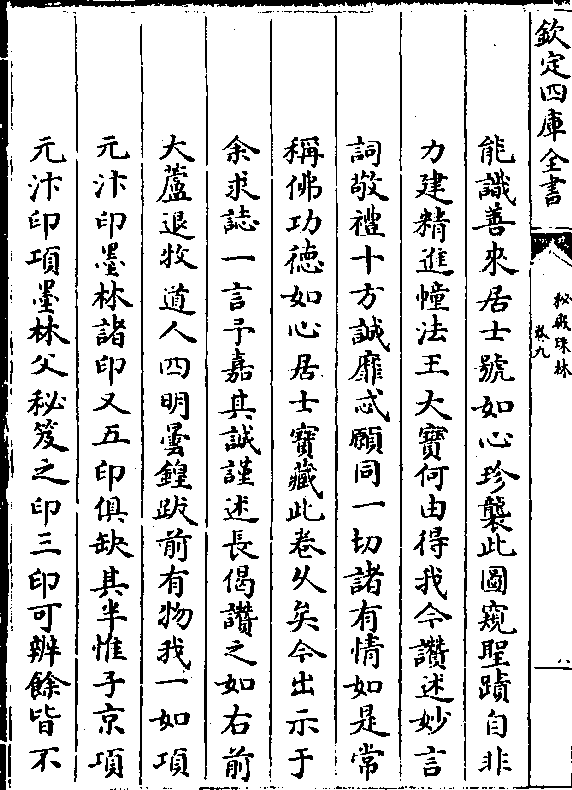 欽定四庫全書
秘殿珠林
卷九
八
能識善來居士號如心珍襲此圖窺聖蹟自非
力建精進幢法王大寶何由得我今讚述妙言
詞敬禮十方誠靡忒願同一切諸有情如是常
稱佛功德如心居士寶藏此卷久矣今出示于
余求誌一言予嘉其誠謹述長偈讚之如右前
大蘆退牧道人四明曇鍠跋前有物我一如項
元汴印墨林諸印又五印俱缺其半惟子京項
元汴印項墨林父秘笈之印三印可辨餘皆不